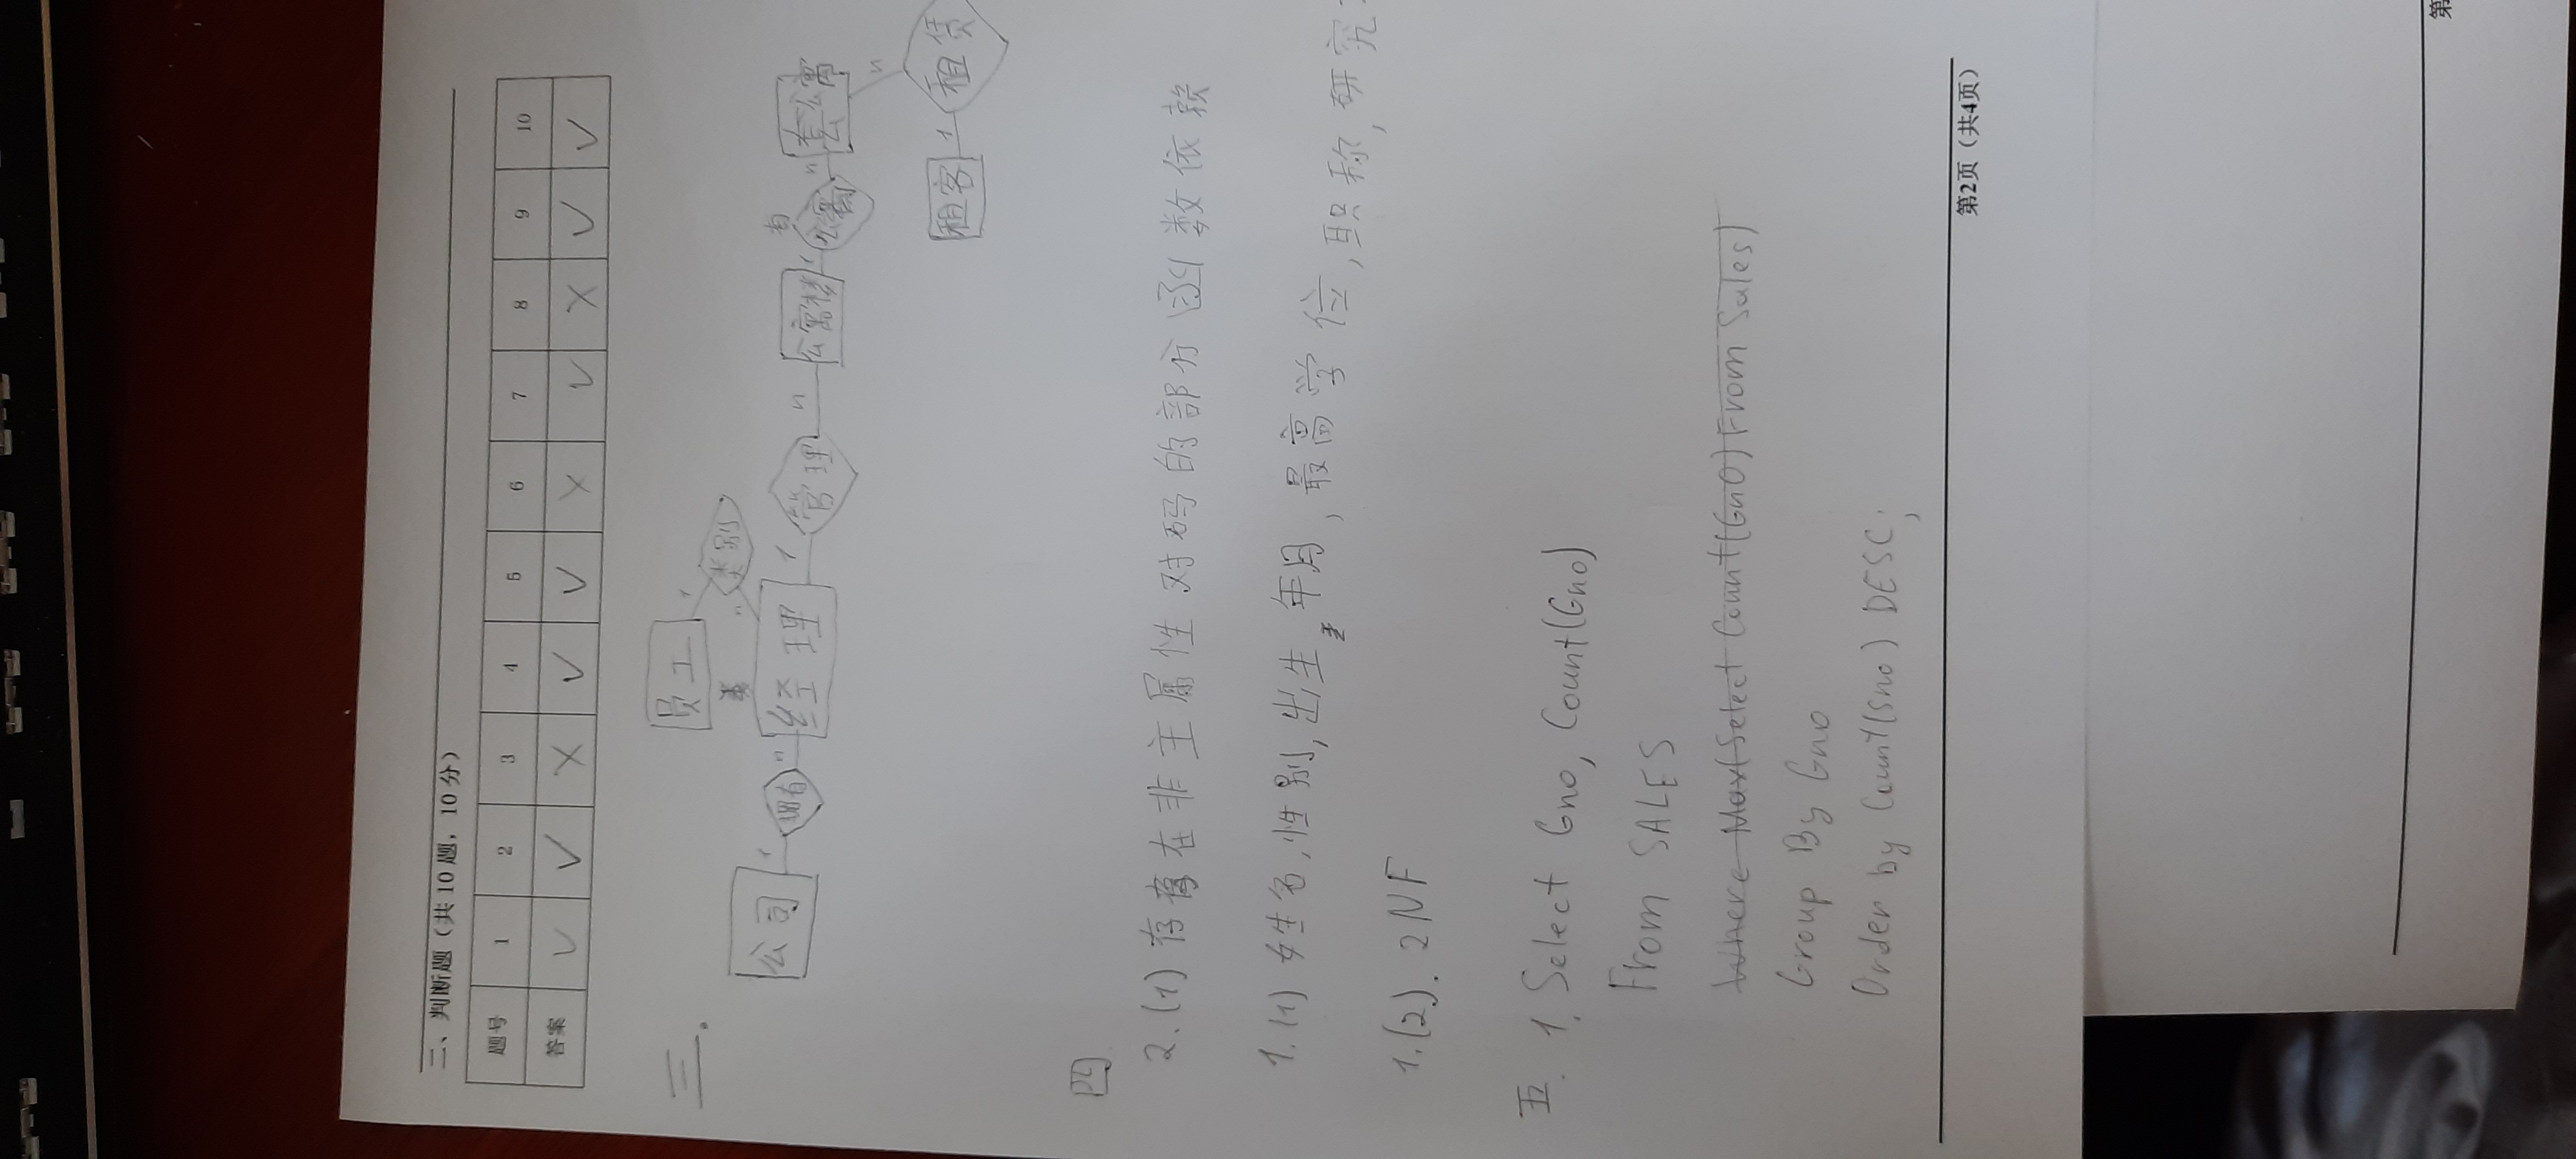 二、判断题（共 10 题，10 分）
题号 1 2 3 4 5 6 7 8 9 10
答案 √ √ × √ √ × √ × √ √
三.
员工 1
类别
类 n
公司 1 拥有 n 经理 1 管理 n 公寓楼 1 公寓 n 套公寓
有
n
租客 1 租赁
四
2.(1) 存在非主属性对码的部分函数依赖
1.(1) 姓名,性别,出生年月,最高学位,职称,研究
1.(2). 2NF
五. 1. Select Gno, Count(Gno)
From SALES
Where Max(Select Count(GnO) From Sales)
Group By Gno
Order by Count(Sno) DESC;
第2页（共4页）
第